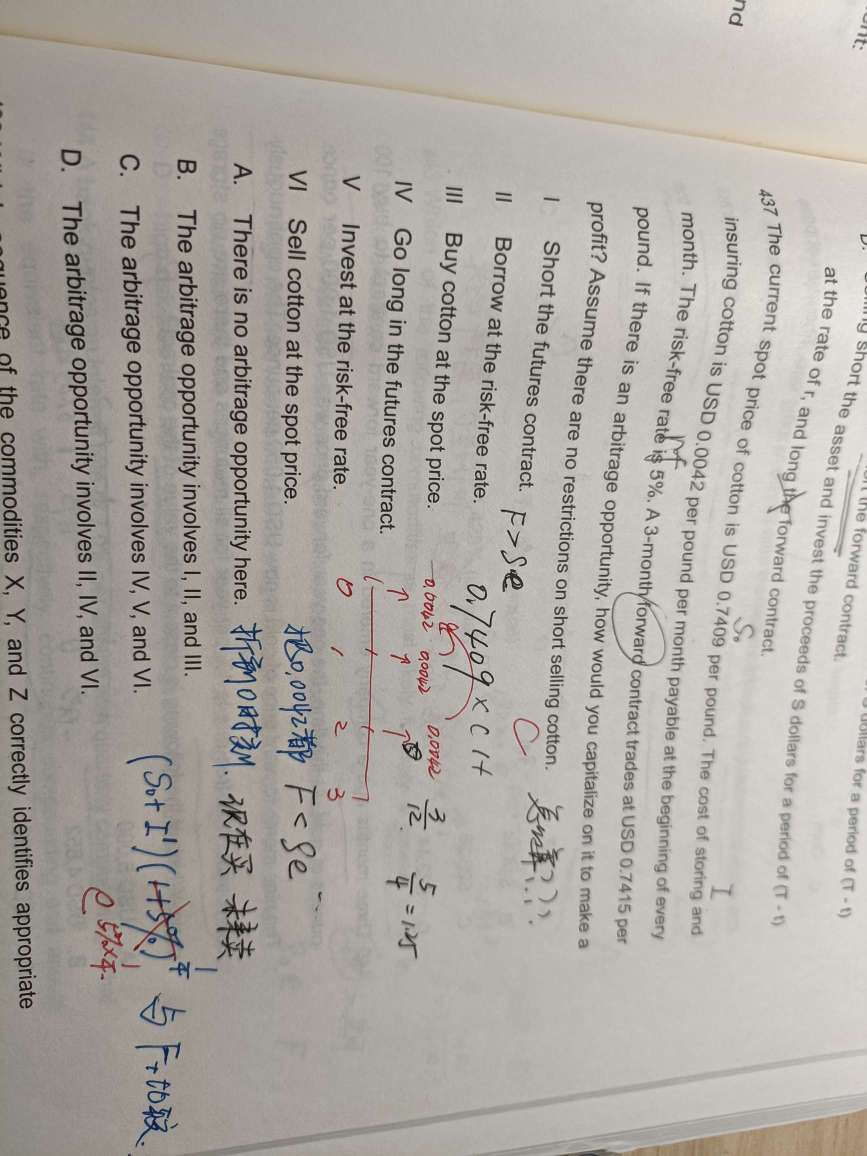 nd
short the asset and invest the proceeds of S dollars for a period of (T - t)
at the rate of r, and long the forward contract.
437 The current spot price of cotton is USD 0.7409 per pound. The cost of storing and
insuring cotton is USD 0.0042 per pound per month payable at the beginning of every
month. The risk-free rate is 5%. A 3-month forward contract trades at USD 0.7415 per
pound. If there is an arbitrage opportunity, how would you capitalize on it to make a
profit? Assume there are no restrictions on short selling cotton.
I Short the futures contract.
II Borrow at the risk-free rate.
III Buy cotton at the spot price.
IV Go long in the futures contract.
V Invest at the risk-free rate.
VI Sell cotton at the spot price.
A. There is no arbitrage opportunity here.
B. The arbitrage opportunity involves I, II, and III.
C. The arbitrage opportunity involves IV, V, and VI.
D. The arbitrage opportunity involves II, IV, and VI.
sequence of the commodities X, Y, and Z correctly identifies appropriate
S₀
I
rf
C
F > Se
0.7409 × (1+
0.0042 0.0042 0.0042
3/12
5/4 = 1.25
0 1 2 3
F < Se
把0.0042都
折到0时刻.
现在买 未来卖
(S₀ + I')(1+5%)^¼ 与F比较.
e^5%×¼